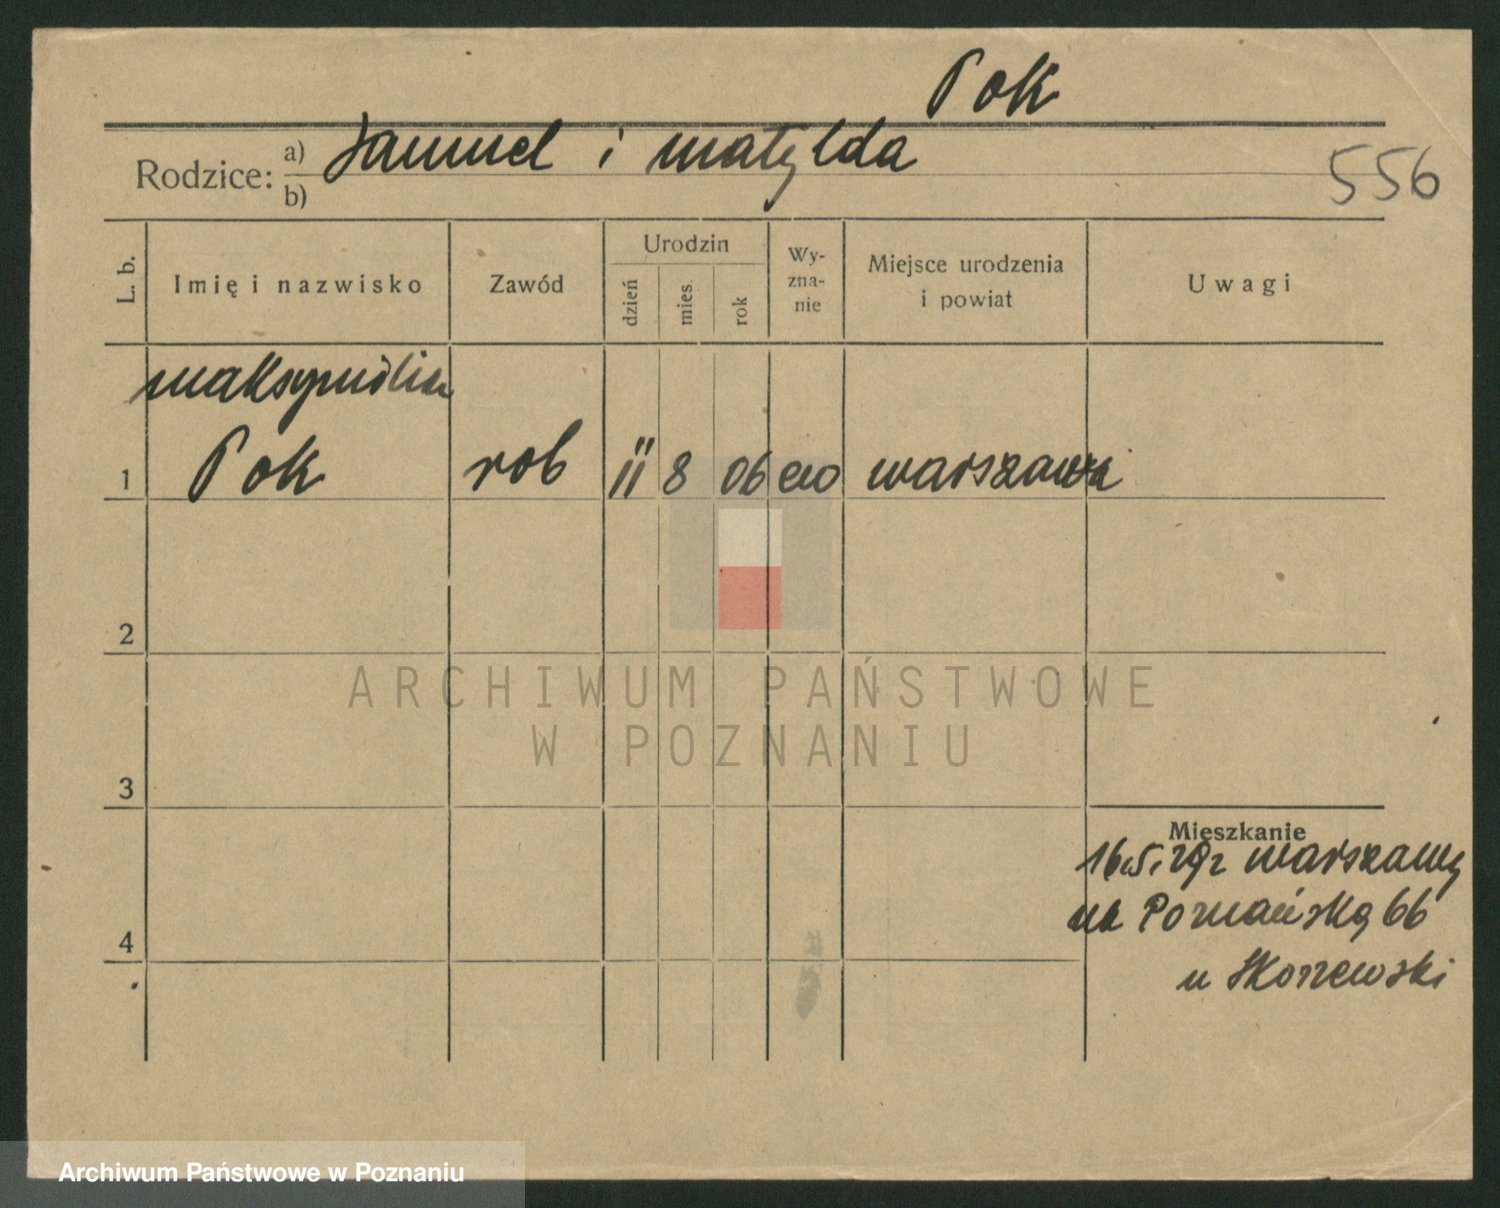 Pok
Rodzice: a) Samuel i Matylda
b)
556
L. b.
Imię i nazwisko
Zawód
Urodzin
dzień
mies
rok
Wy-
zna-
nie
Miejsce urodzenia
i powiat
Uwagi
Maksymilian
1 Pok rob 11 8 06 ew Warszawa
2
3
4
Mieszkanie
16.5.29 z Warszawy
na Poznańską 66
u Skorzewski
ARCHIWUM PAŃSTWOWE
W POZNANIU
Archiwum Państwowe w Poznaniu